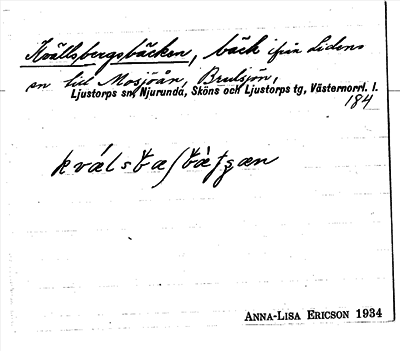 Kvällsbergsbäcken, bäck från Lidens
sn till Mosjöån, Brulsjön,
Ljustorps sn, Njurunda, Sköns och Ljustorps tg, Västernorrl. l.
184
ANNA-LISA ERICSON 1934